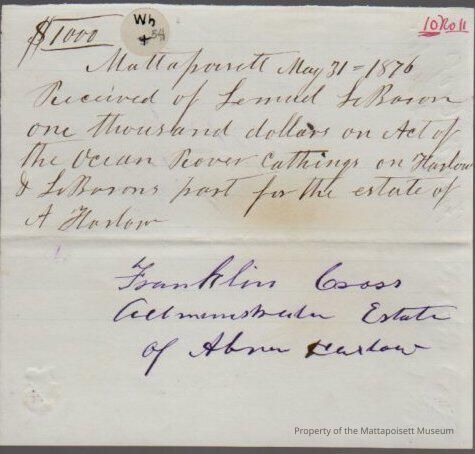 $1000
Wh
+ 54
10 Roll
Mattapoisett May 31 = 1876
Received of Lemuel LeBaron
one thousand dollars on Act of
the Ocean Rover Cathings on Harlow
& LeBarons part for the estate of
A Harlow
Franklin Cross
Adminstrater Estate
of Abner Harlow
Property of the Mattapoisett Museum